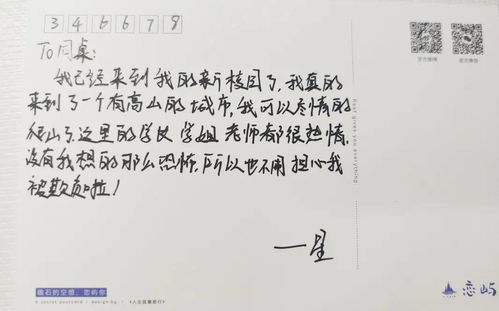 346678
To 同桌:
我已经来到我的新校园了,我真的
来到了一个有高山的城市,我可以尽情的
爬山了,这里的学长 学姐 老师都很热情,
没有我想的那么恐怖,所以也不用担心我
被欺负啦!
一星
Real gives you everything
礁石的空想,恋屿你
A secret postcard / design by
《人生就像旅行》
恋屿